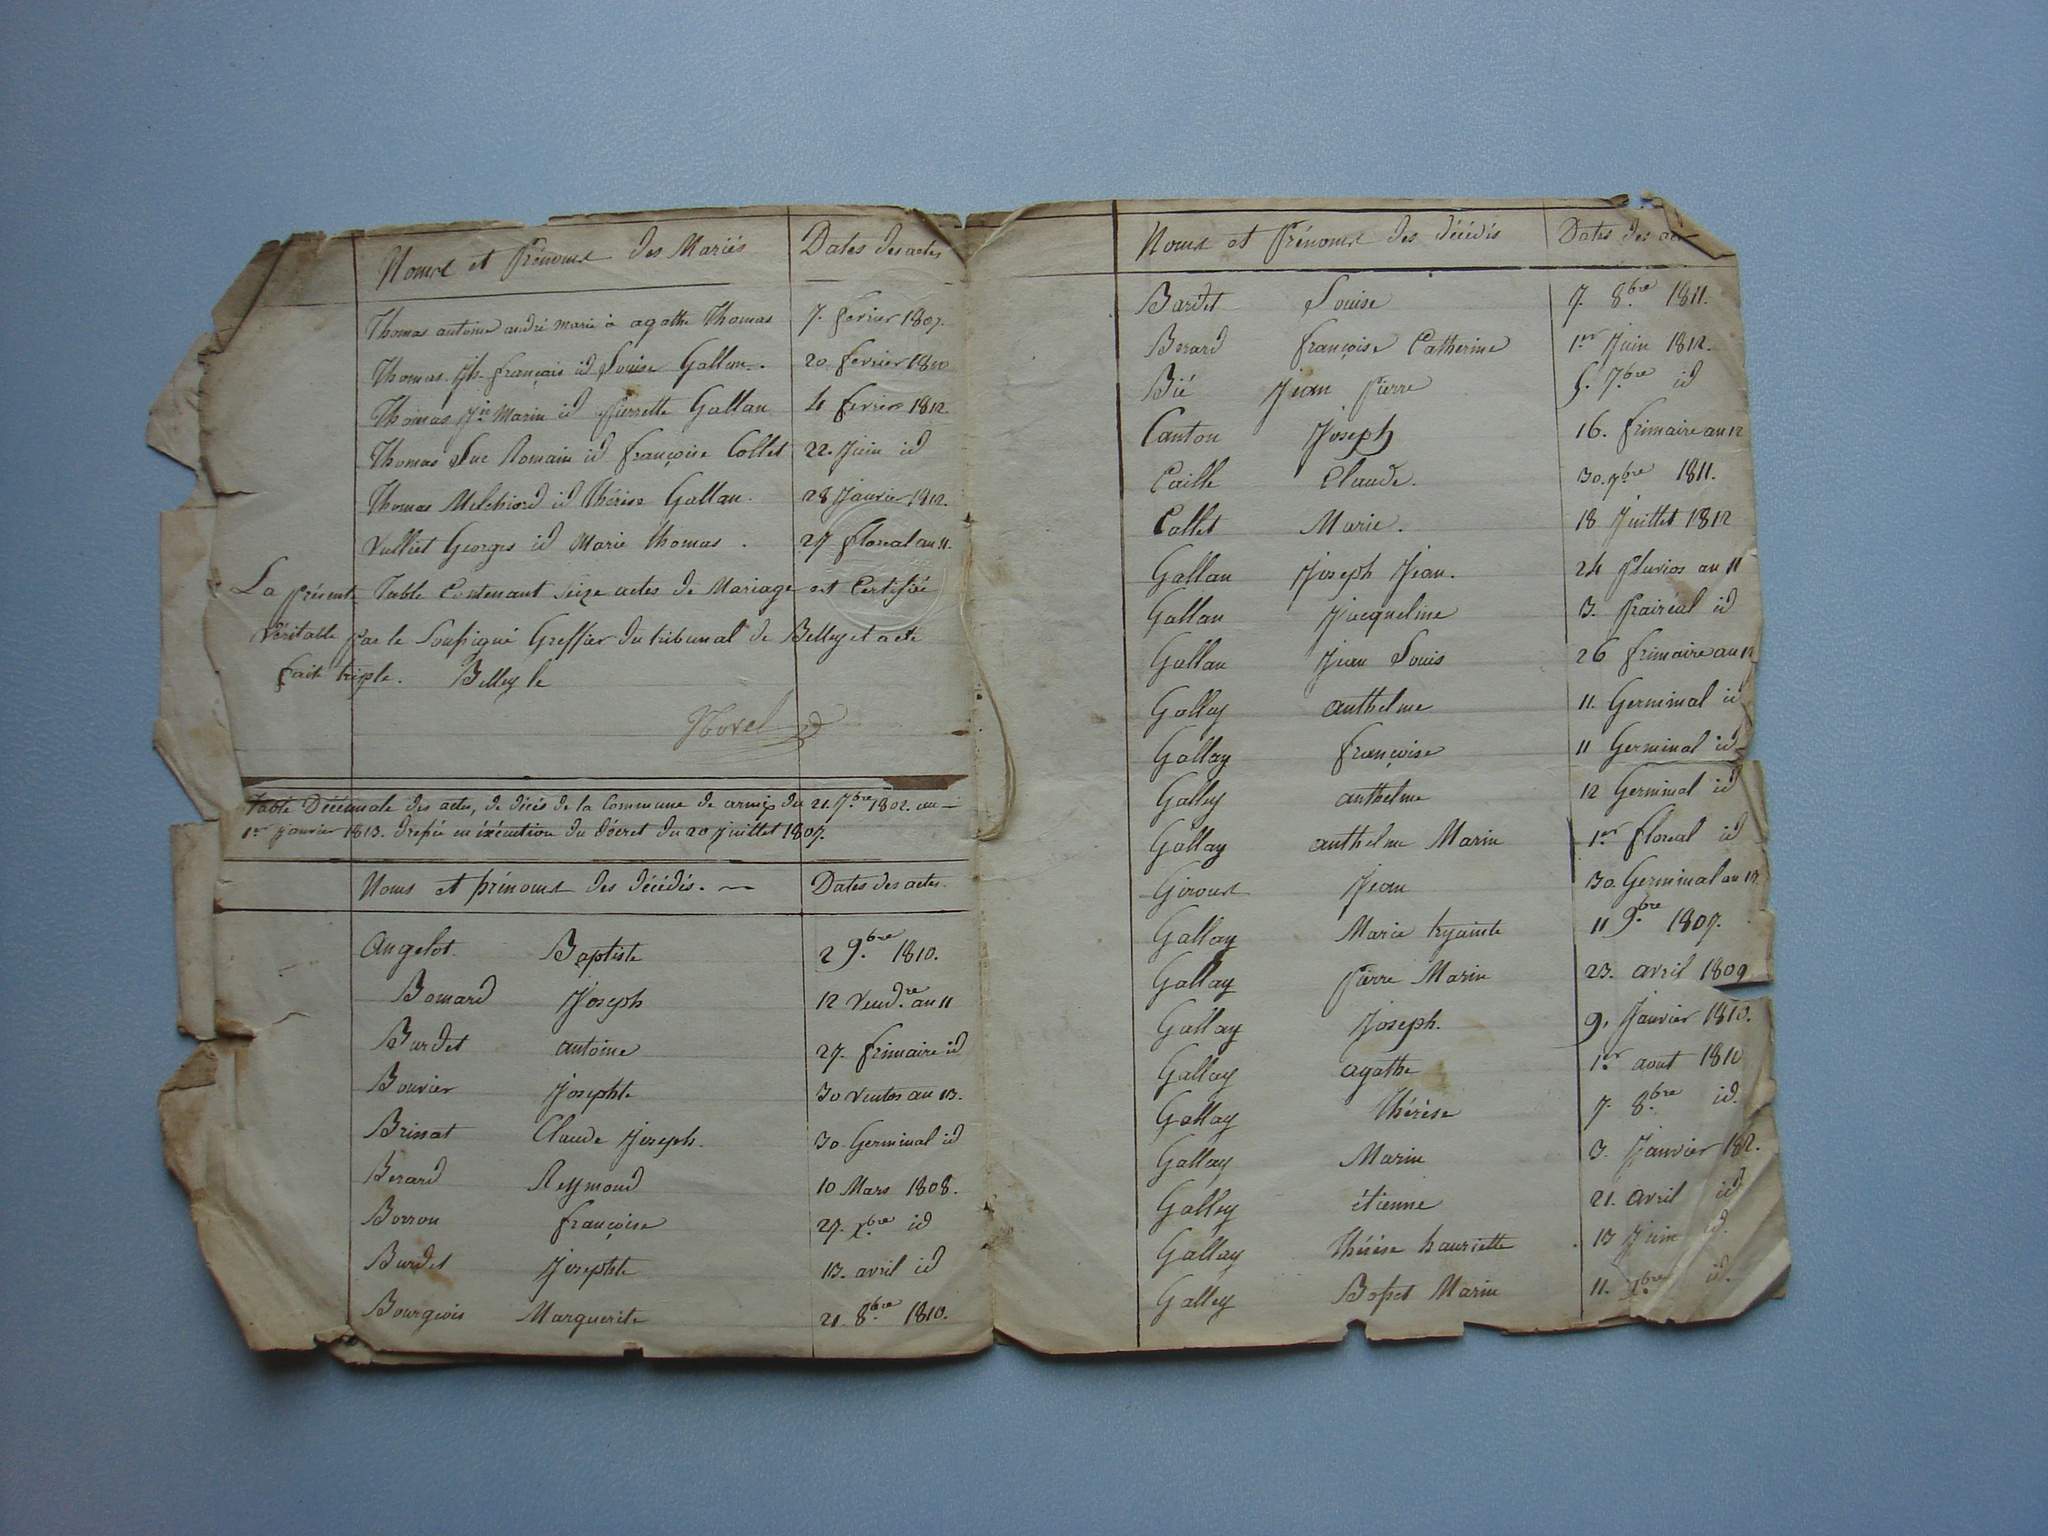 Noms et Prénoms des Mariés Dates des actes
Thomas antoine andré marié à agathe Thomas 7. fevrier 1807.
Thomas Jh. françois id Louise Gallan. 20 fevrier 1810
Thomas Marin id Pierrette Gallan 4 fevrier 1812.
Thomas Luc Romain id françoise Collet 22. Juin id
Thomas Melchiord id Thérèse Gallan. 28 Janvier 1812.
Vulliet Georges id Marie Thomas. 27 floreal an 11.
La présente Table Contenant seize actes de Mariage est Certifiée
Véritable par le Soussigné Greffier du tribunal de Belley et a été
fait triple. Belley le
Table Décennale des actes, de décès de la Commune de du 21. 7.bre 1802. au
1er Janvier 1813. dressée en éxécution du décret du 20 juillet 1807.
Noms et prénoms des décédés. Dates des actes.
Angelot. Baptiste 2 9.bre 1810.
Bomard Joseph 12 Vend.re an 11
Burdet antoine 27. frimaire id
Bouvier Josephte 30 Ventos an 13.
Brinat Claude Joseph. 30 Germinal id
Berard Reymond 10 Mars 1808.
Borron françoise 27. x.bre id
Burdet Josephte 13. avril id
Bourgeois Marguerite 21. 8.bre 1810.
Noms et Prénoms des décédés Dates des
Bardet Louise 7. 8.bre 1811.
Berard françoise Catherine 1er Juin 1812.
Bié Jean Pierre 5. 7.bre id
Canton Joseph 16. frimaire an 12
Caille Claude. 30. 7bre 1811.
Collet Marie. 18 Juillet 1812
Gallan Joseph Jean. 24 Pluvios an 11
Gallan Jacqueline 3. Prairéal id
Gallan Jean Louis 26 frimaire an 12
Gallay anthelme 11. Germinal id
Gallay françoise 11 Germinal id
Galley anthelme 12 Germinal id
Gallay anthelme Marin 1er floreal id
Giroust Jean 30. Germinal an 12
Gallay Marie hyainte 11 9.bre 1807.
Gallay Pierre Marin 23. avril 1809
Gallay Joseph. 9. Janvier 1810.
Gallay agathe 1er aout 1810
Gallay Thérèse 7. 8.bre id.
Gallay Marin 3. Janvier 1812.
Galley étienne 21. avril id
Gallay Thérèse hauriette 13 Juin id.
Galley Bosset Marin 11. x.bre id.